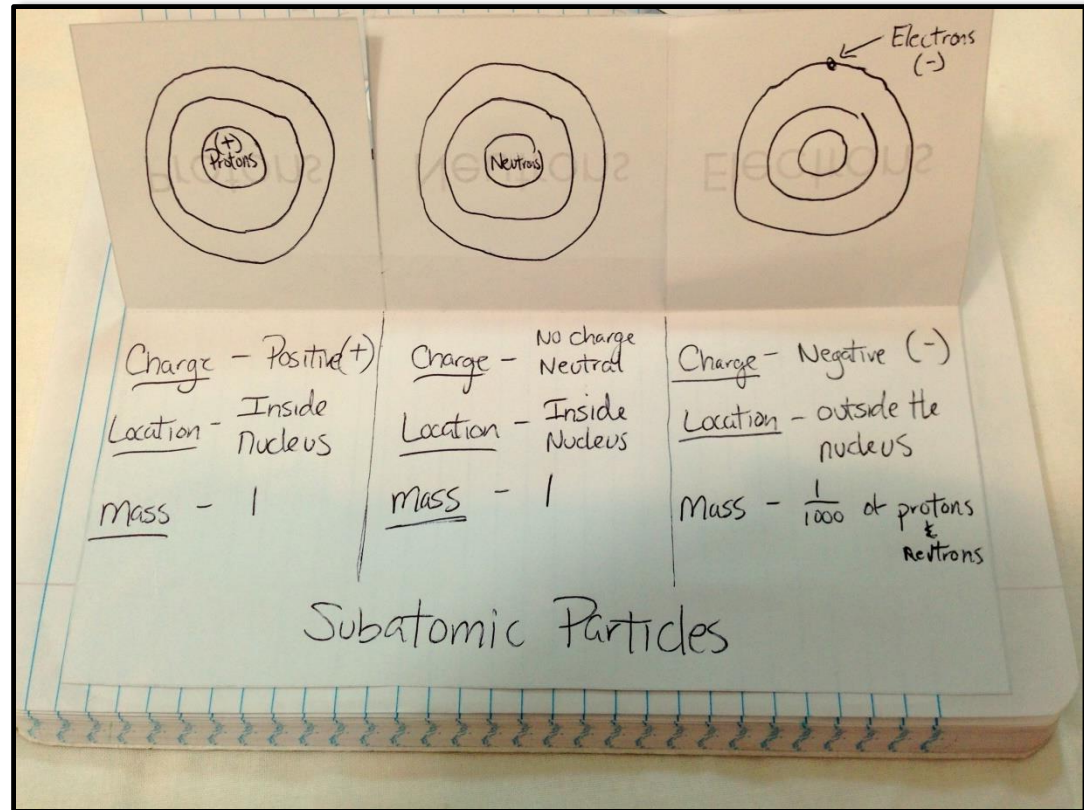 Electrons
(-)
(+)
Protons
Neutrons
Protons
Neutrons
Electrons
Charge - Positive (+)
Location - Inside
nucleus
Mass - 1
Charge - No charge
Neutral
Location - Inside
Nucleus
Mass - 1
Charge - Negative (-)
Location - outside the
nucleus
Mass - 1/1000 of protons
&
Neutrons
Subatomic Particles